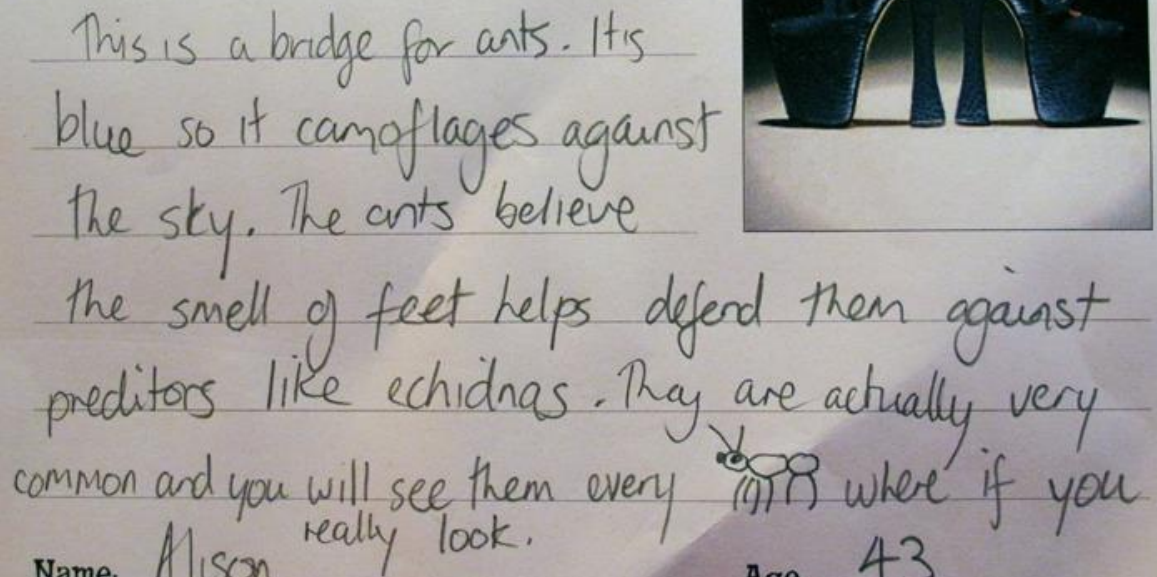 This is a bridge for ants. It is
blue so it camoflages against
the sky. The ants believe
the smell of feet helps defend them against
preditors like echidnas. Thay are actually very
common and you will see them every where if you
really look.
Name. Alison Age 43